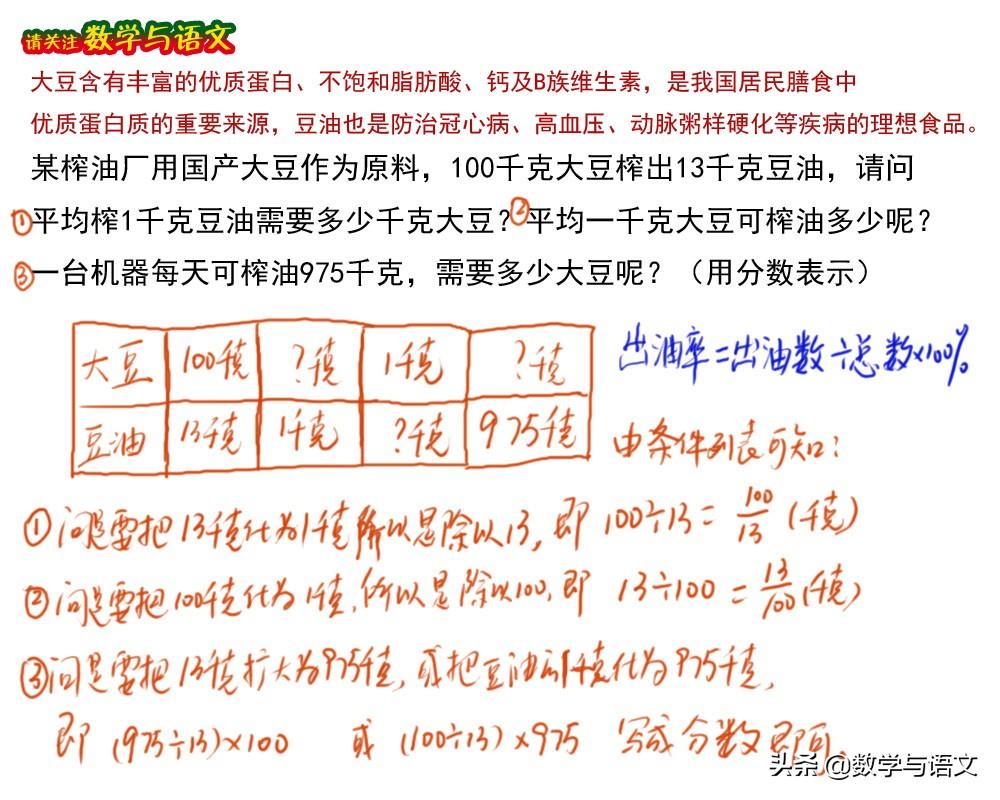 请关注 数学与语文
大豆含有丰富的优质蛋白、不饱和脂肪酸、钙及B族维生素，是我国居民膳食中
优质蛋白质的重要来源，豆油也是防治冠心病、高血压、动脉粥样硬化等疾病的理想食品。
某榨油厂用国产大豆作为原料，100千克大豆榨出13千克豆油，请问
①平均榨1千克豆油需要多少千克大豆？②平均一千克大豆可榨油多少呢？
③一台机器每天可榨油975千克，需要多少大豆呢？（用分数表示）
大豆 100千克 ?千克 1千克 ?千克
豆油 13千克 1千克 ?千克 975千克
出油率=出油数÷总数×100%
由条件列表可知：
①问是要把13千克化为1千克所以是除以13，即 100÷13=100/13(千克)
②问是要把100千克化为1千克，所以是除以100，即 13÷100=13/100(千克)
③问是要把13千克扩大为975千克，或把豆油的1千克化为975千克，
即 (975÷13)×100 或 (100÷13)×975 写成分数即可。
头条 @数学与语文